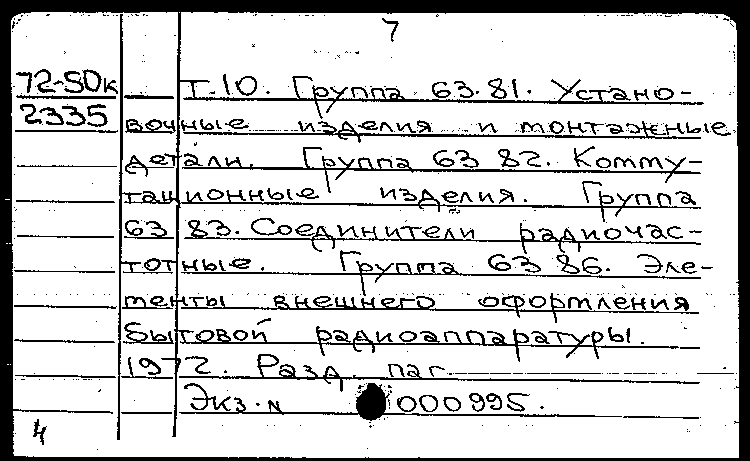 7
72-50к Т.10. Группа 63.81. Устано-
2335 вочные изделия и монтажные
детали. Группа 63 82. Комму-
тационные изделия. Группа
63 83. Соединители радиочас-
тотные. Группа 63 86. Эле-
менты внешнего оформления
бытовой радиоаппаратуры.
1972. Разд. паг.
Экз. N 000995.
4